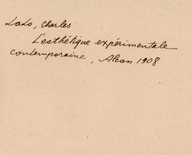 Lalo, Charles
L'esthétique expérimentale
contemporaine, Alcan 1908